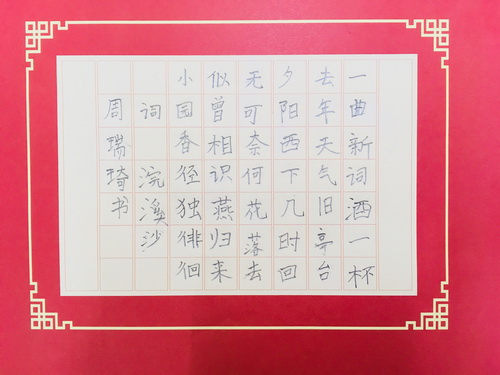 一曲新词酒一杯
去年天气旧亭台
夕阳西下几时回
无可奈何花落去
似曾相识燕归来
小园香径独徘徊
词 浣溪沙
周瑞琦书